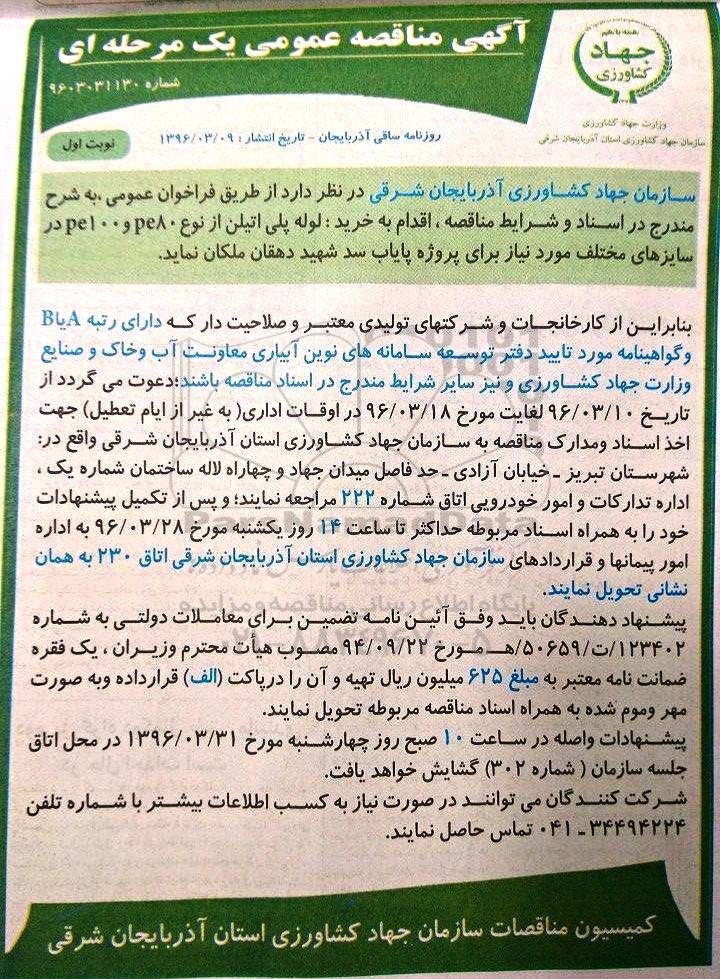 آگهی مناقصه عمومی یک مرحله ای
شماره ۹۶۰۳۰۳۱۱۳۰
همه با هم
جهاد
کشاورزی
وزارت جهاد کشاورزی
سازمان جهاد کشاورزی استان آذربایجان شرقی
روزنامه ساقی آذربایجان - تاریخ انتشار : ۱۳۹۶/۰۳/۰۹
نوبت اول
سازمان جهاد کشاورزی آذربایجان شرقی در نظر دارد از طریق فراخوان عمومی ،به شرح
مندرج در اسناد و شرایط مناقصه ، اقدام به خرید : لوله پلی اتیلن از نوع pe۸۰ و pe۱۰۰ در
سایزهای مختلف مورد نیاز برای پروژه پایاب سد شهید دهقان ملکان نماید.
بنابراین از کارخانجات و شرکتهای تولیدی معتبر و صلاحیت دار که دارای رتبه A یا B
وگواهینامه مورد تایید دفتر توسعه سامانه های نوین آبیاری معاونت آب وخاک و صنایع
وزارت جهاد کشاورزی و نیز سایر شرایط مندرج در اسناد مناقصه باشند؛دعوت می گردد از
تاریخ ۹۶/۰۳/۱۰ لغایت مورخ ۹۶/۰۳/۱۸ در اوقات اداری( به غیر از ایام تعطیل) جهت
اخذ اسناد ومدارک مناقصه به سازمان جهاد کشاورزی استان آذربایجان شرقی واقع در:
شهرستان تبریز ـ خیابان آزادی ـ حد فاصل میدان جهاد و چهاراه لاله ساختمان شماره یک ،
اداره تدارکات و امور خودرویی اتاق شماره ۲۲۲ مراجعه نمایند؛ و پس از تکمیل پیشنهادات
خود را به همراه اسناد مربوطه حداکثر تا ساعت ۱۴ روز یکشنبه مورخ ۹۶/۰۳/۲۸ به اداره
امور پیمانها و قراردادهای سازمان جهاد کشاورزی استان آذربایجان شرقی اتاق ۲۳۰ به همان
نشانی تحویل نمایند.
پیشنهاد دهندگان باید وفق آئین نامه تضمین برای معاملات دولتی به شماره
۱۲۳۴۰۲/ت/۵۰۶۵۹/هـ مورخ ۹۴/۰۹/۲۲ مصوب هیأت محترم وزیران ، یک فقره
ضمانت نامه معتبر به مبلغ ۶۲۵ میلیون ریال تهیه و آن را درپاکت (الف) قرارداده وبه صورت
مهر وموم شده به همراه اسناد مناقصه مربوطه تحویل نمایند.
پیشنهادات واصله در ساعت ۱۰ صبح روز چهارشنبه مورخ ۱۳۹۶/۰۳/۳۱ در محل اتاق
جلسه سازمان ( شماره ۳۰۲) گشایش خواهد یافت.
شرکت کنندگان می توانند در صورت نیاز به کسب اطلاعات بیشتر با شماره تلفن
۳۴۴۹۴۲۲۴ ـ ۰۴۱ تماس حاصل نمایند.
کمیسیون مناقصات سازمان جهاد کشاورزی استان آذربایجان شرقی